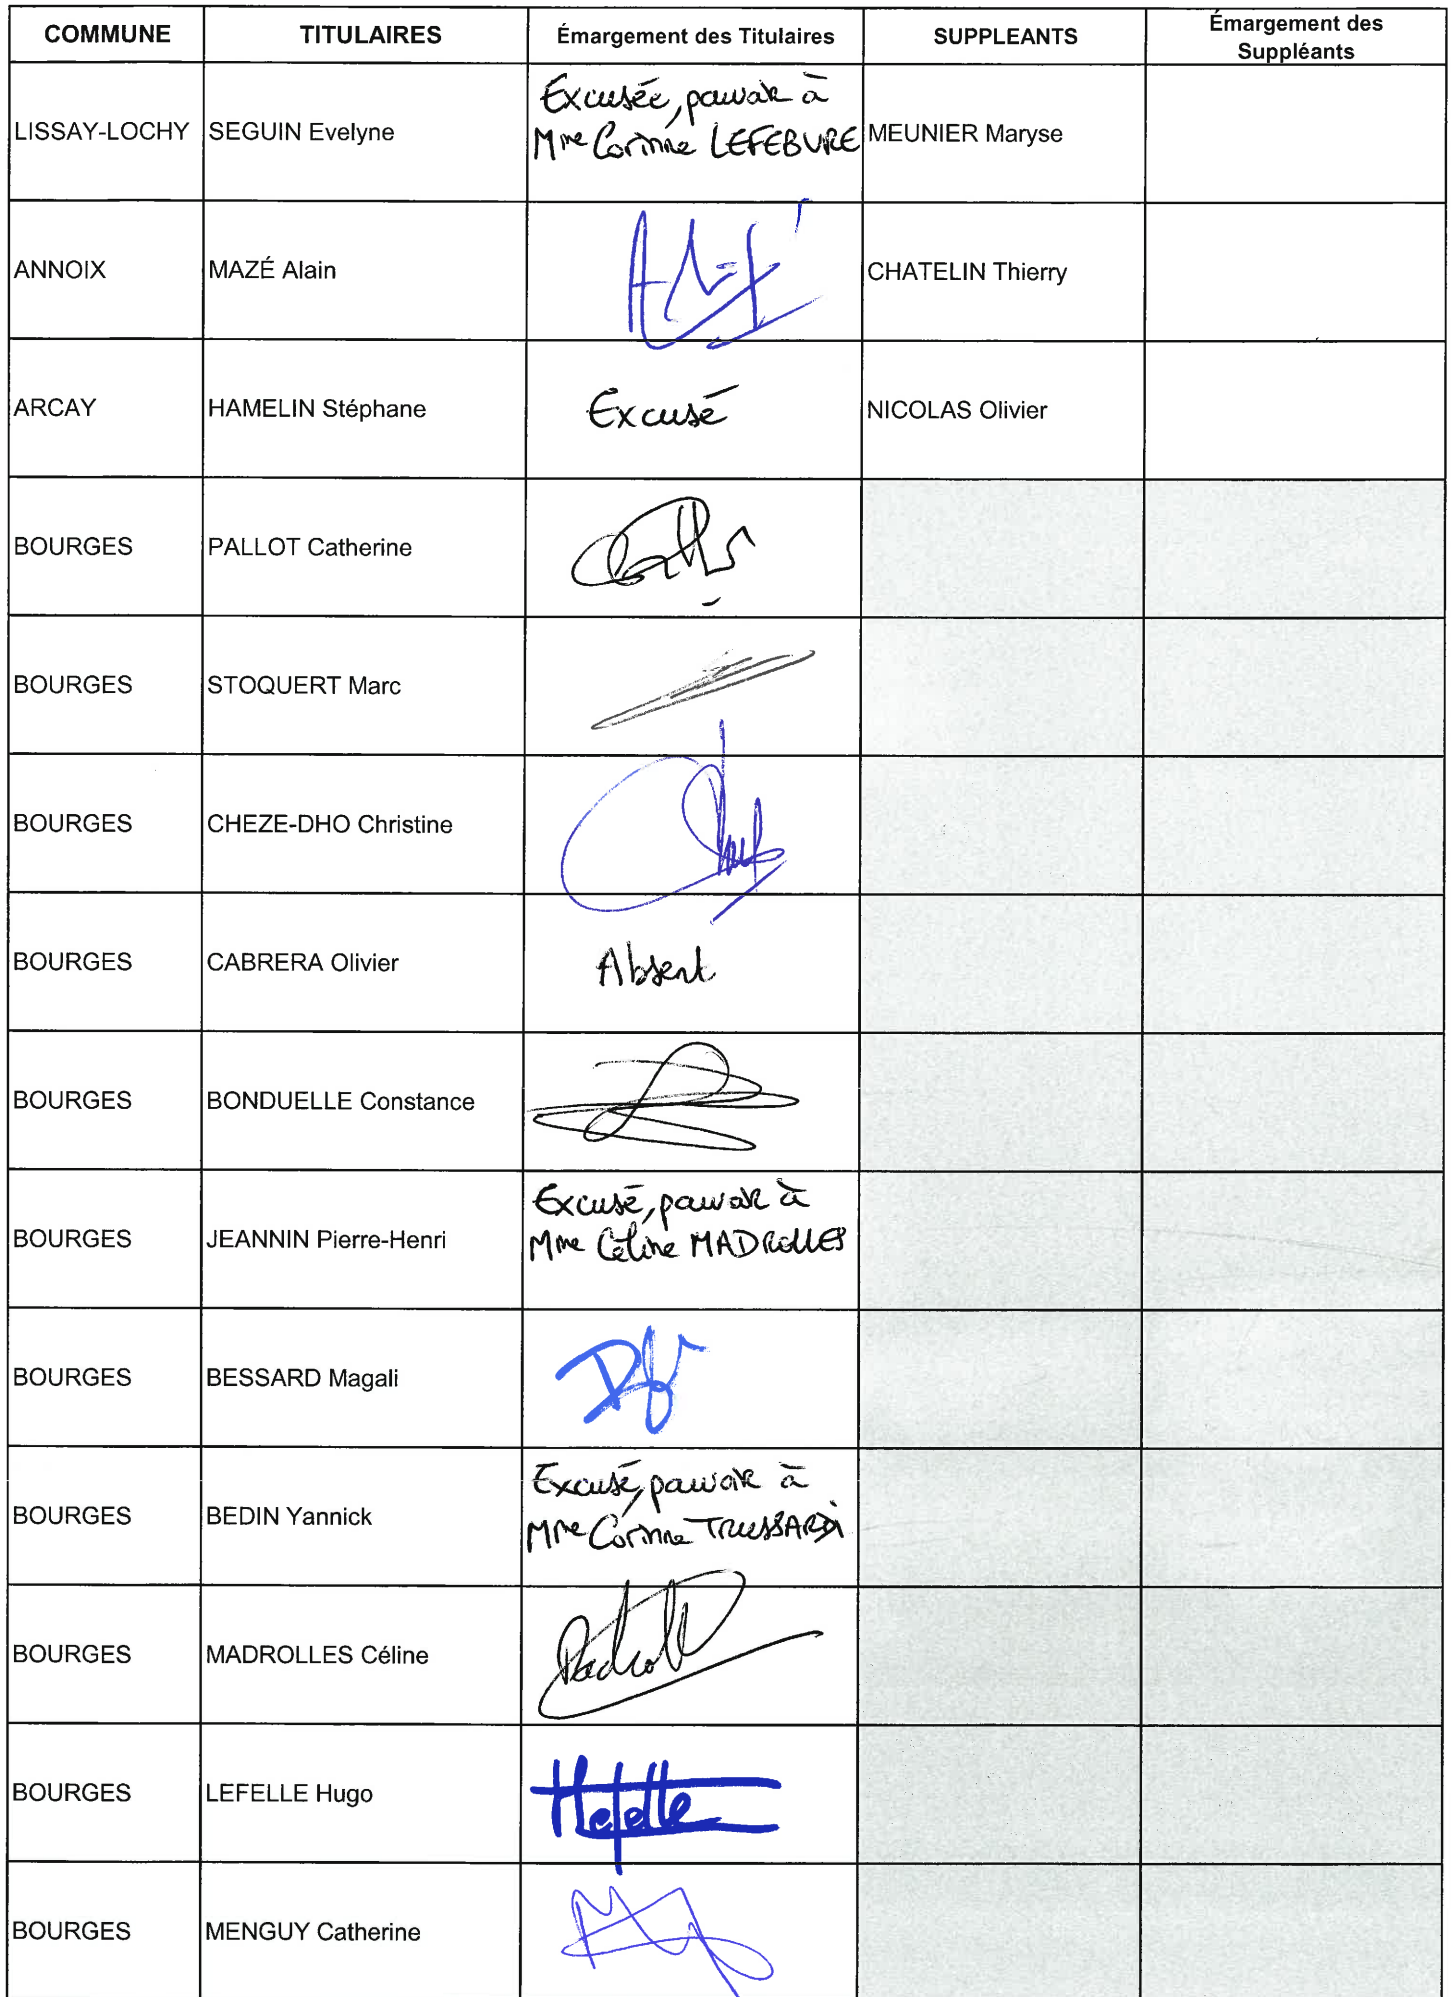 COMMUNE TITULAIRES Émargement des Titulaires SUPPLEANTS Émargement des
Suppléants
Excusée, pouvoir à
LISSAY-LOCHY SEGUIN Evelyne Mme Corinne LEFEBVRE MEUNIER Maryse
ANNOIX MAZÉ Alain CHATELIN Thierry
ARCAY HAMELIN Stéphane Excusé NICOLAS Olivier
BOURGES PALLOT Catherine
BOURGES STOQUERT Marc
BOURGES CHEZE-DHO Christine
BOURGES CABRERA Olivier Absent
BOURGES BONDUELLE Constance
Excusé, pouvoir à
BOURGES JEANNIN Pierre-Henri Mme Céline MADROLLES
BOURGES BESSARD Magali
Excusé, pouvoir à
BOURGES BEDIN Yannick Mme Corinne TRUSSARDI
BOURGES MADROLLES Céline
BOURGES LEFELLE Hugo Hefelle
BOURGES MENGUY Catherine